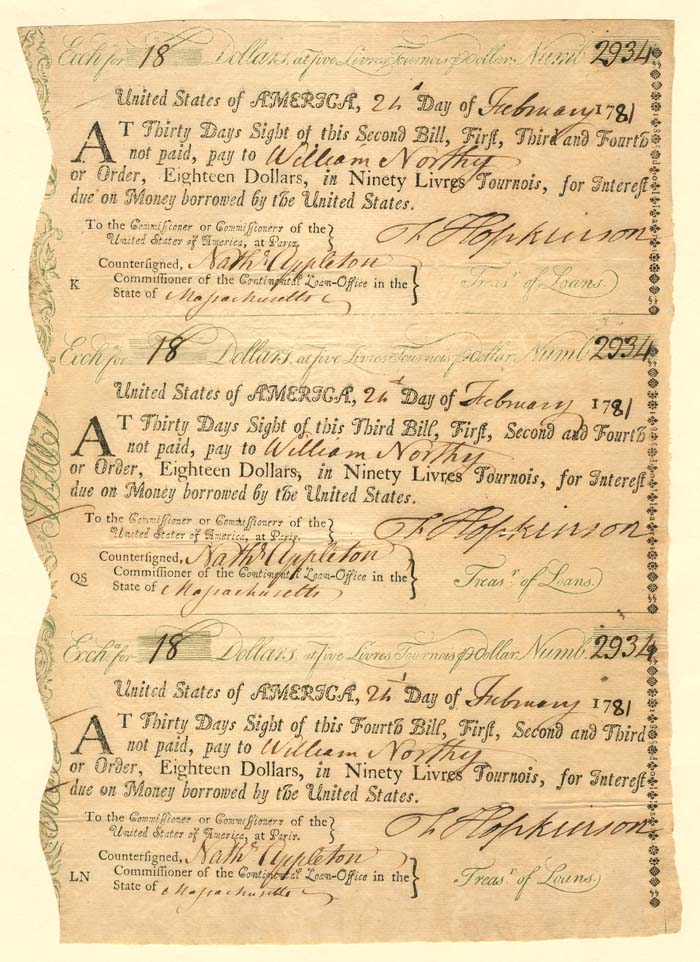 Exchᵃ for 18 Dollars, at five Livres Tournois ⅌ Dollar. Numb. 2934
United States of AMERICA, 24 Day of February 1781
AT Thirty Days Sight of this Second Bill, First, Third and Fourth
not paid, pay to William Northy
or Order, Eighteen Dollars, in Ninety Livres Tournois, for Interest
due on Money borrowed by the United States.
To the Commissioner or Commissioners of the
United States of America, at Paris. F Hopkinson
Countersigned, Nathˡ Appleton
K Commissioner of the Continental Loan-Office in the Treasʳ of Loans.
State of Massachusetts
Exchᵃ for 18 Dollars, at five Livres Tournois ⅌ Dollar. Numb. 2934
United States of AMERICA, 24 Day of February 1781
AT Thirty Days Sight of this Third Bill, First, Second and Fourth
not paid, pay to William Northy
or Order, Eighteen Dollars, in Ninety Livres Tournois, for Interest
due on Money borrowed by the United States.
To the Commissioner or Commissioners of the
United States of America, at Paris. F Hopkinson
Countersigned, Nathˡ Appleton
QS Commissioner of the Continental Loan-Office in the Treasʳ of Loans.
State of Massachusetts
Exchᵃ for 18 Dollars, at five Livres Tournois ⅌ Dollar. Numb. 2934
United States of AMERICA, 24 Day of February 1781
AT Thirty Days Sight of this Fourth Bill, First, Second and Third
not paid, pay to William Northy
or Order, Eighteen Dollars, in Ninety Livres Tournois, for Interest
due on Money borrowed by the United States.
To the Commissioner or Commissioners of the
United States of America, at Paris. F Hopkinson
Countersigned, Nathˡ Appleton
LN Commissioner of the Continental Loan-Office in the Treasʳ of Loans.
State of Massachusetts